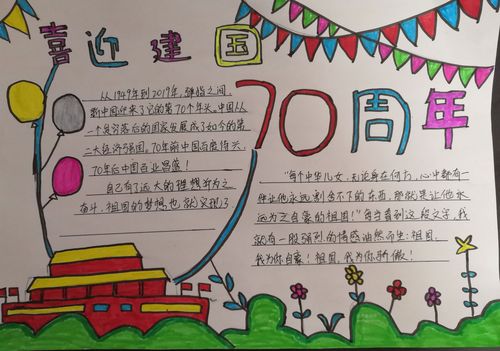 喜迎建国
70周年
从1949年到2019年,弹指之间,
新中国迎来了它的第70个年头。中国从
一个贫穷落后的国家发展成了如今的第
二大经济强国。70年前中国百废待兴,
70年后中国百业昌盛!
自己有了远大的理想并为之
奋斗,祖国的梦想也就实现了
"每个中华儿女,无论身在何方,心中都有一
样让他永远割舍不下的东西,那就是让他永
远为之自豪的祖国!"每当看到这段文字,我
就有一股强烈的情感油然而生:祖国,
我为你自豪!祖国,我为你骄傲!